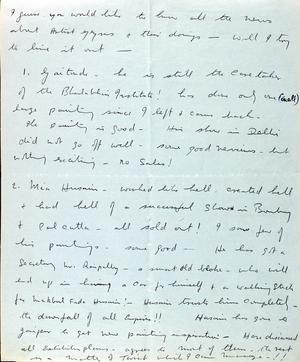 I guess you would like to know all the news
about Artist guys & their doings — well I try
to line it out —
1. Gaitonde — he is still the caretaker
of the Bhulabhai Institute! has done only one (small)
large painting since I left & came back.
The painting is good — His show in Delhi
did not go off well some good reviews — but
nothing exciting — no Sales!
2. Mia Husain — worked like hell created hell
& had hell of a successful shows in Bombay
& Calcutta — all sold out! I saw few of
his paintings — some good — He has got a
Secretary Mr. — a smart old bloke — who will
end up in having a Car for himself & a walking stick
for Makbool Fida Husain! — Husain trusts him completely —
the downfall of all Empires!! Husain has gone to
to get new painting inspiration — Have discussed
all exhibition plans — agrees to most of them — the rest
is a matter of which I can